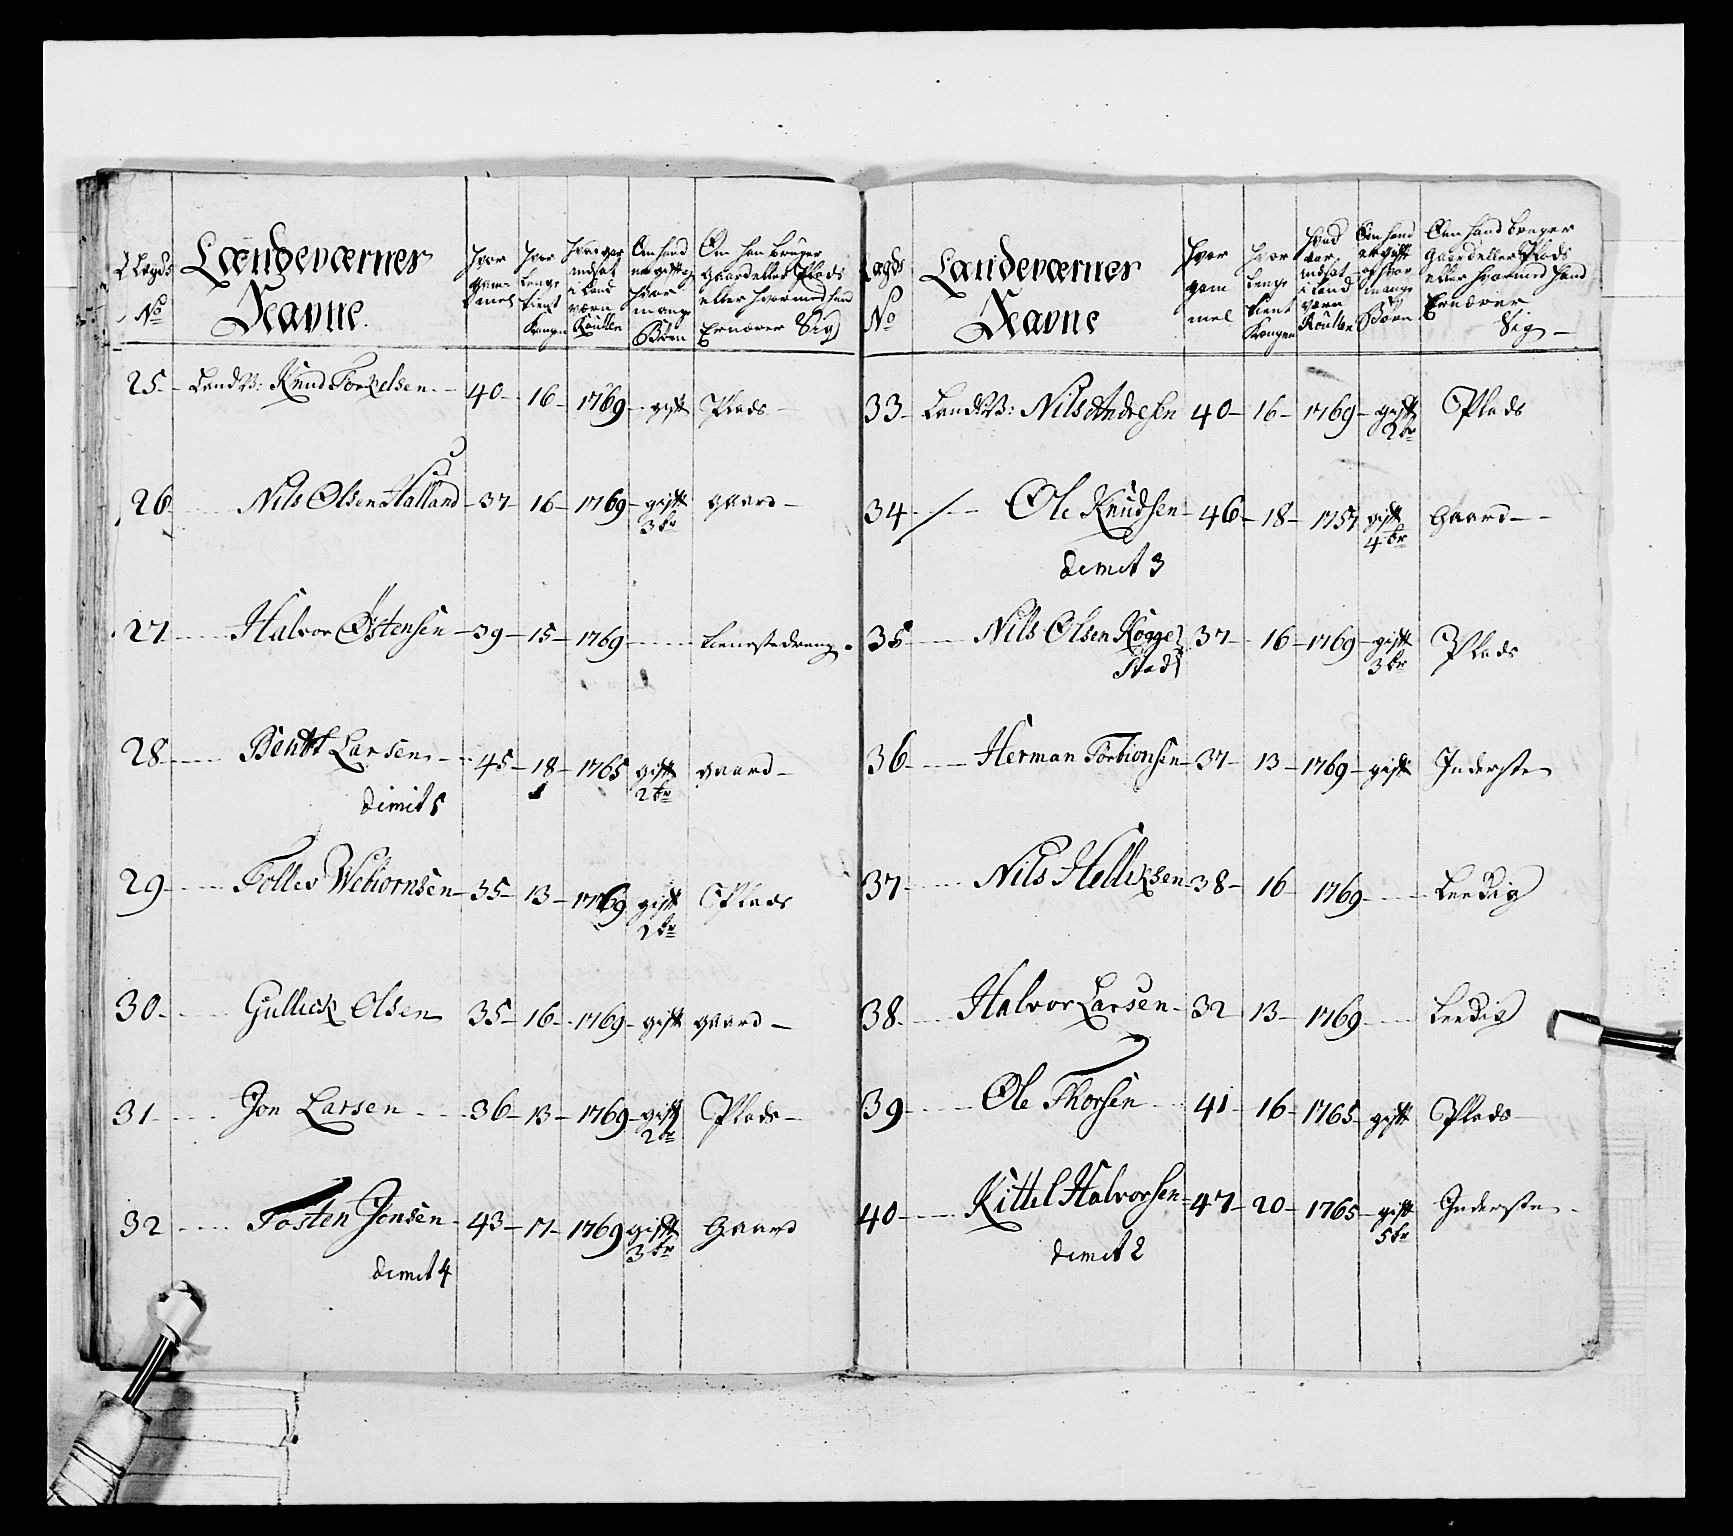 Lægds No
Landeværnes Navne
Hvor gammel
Hvor lenge tient Kongen
Hvad Aar indsat i Land værn Roullen
Om hand er gift og hvor mange Børn
Om han bruger Gaard eller Plads eller hvormed hand Ernærer Sig
25 - LandV: Knud Torkelsen - 40 - 16 - 1769 - gift Plads -
26 Nils Olsen Halland - 37 - 16 - 1769 - gift gaard -
3 br
27 Halvor Østensen - 39 - 15 - 1769 - tienestedreng
28 Bendt Larsen - 45 - 18 - 1765 gift gaard -
2 br
dimit 5
29 Tollev Webiornsen - 35 - 13 - 1769 gift Plads
2 br
30 Gullick Olsen 35 - 16 - 1769 - gift gaard -
31 Jon Larsen 36 - 13 - 1769 - gift Plads -
2 br
32 Tosten Jonsen - 43 - 17 - 1769 gift Gaard
3 br
dimit 4
Lægds No
Landeværnes Navne
Hvor gammel
Hvor lenge tient Kongen
Hvad Aar indsat i Land værn Roullen
Om hand er gift og hvor mange Børn
Om hand bruger Gaard eller Plads eller hvormed hand Ernærer Sig -
33 - LandV: Nils Andresen 40 - 16 - 1769 - gift Plads
2 br
34 / Ole Knudsen - 46 - 18 - 1757 gift Gaard -
4 br
dimit 3
35 Nils Olsen Kogge 37 - 16 - 1769 - gift Plads
Stad 3 br
36 Herman Torbionsen - 37 - 13 - 1769 - gift Inderste
37 Nils Helleksen - 38 - 16 - 1769 - Leedig
38 Halvor Larsen - 32 - 13 - 1769 Leedig
39 Ole Thorsen 41 - 16 - 1765 - gift Plads
40 Kittel Halvorsen - 47 - 20 - 1765 - gift Inderste
5 br
dimit 2